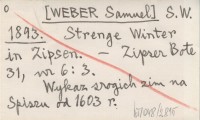 [WEBER Samuel] S.W.
1893. Strenge Winter
in Zipsen. — Zipser Bote
31, nr 6: 3.
Wykaz srogich zim na
Spiszu od 1603 r.